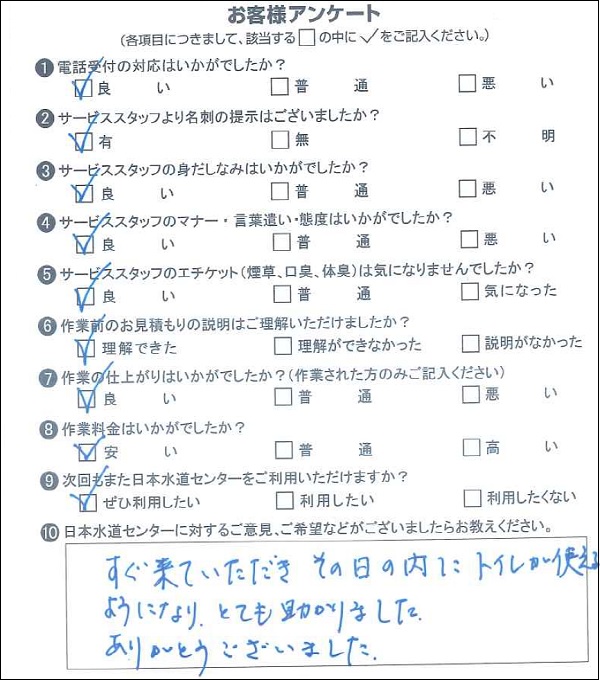 お客様アンケート
(各項目につきまして、該当する□の中に✓をご記入ください。)
❶電話受付の対応はいかがでしたか?
☑良い □普通 □悪い
❷サービススタッフより名刺の提示はございましたか?
☑有 □無 □不明
❸サービススタッフの身だしなみはいかがでしたか?
☑良い □普通 □悪い
❹サービススタッフのマナー・言葉遣い・態度はいかがでしたか?
☑良い □普通 □悪い
❺サービススタッフのエチケット(煙草、口臭、体臭)は気になりませんでしたか?
☑良い □普通 □気になった
❻作業前のお見積もりの説明はご理解いただけましたか?
☑理解できた □理解ができなかった □説明がなかった
❼作業の仕上がりはいかがでしたか?(作業された方のみご記入ください)
☑良い □普通 □悪い
❽作業料金はいかがでしたか?
☑安い □普通 □高い
❾次回もまた日本水道センターをご利用いただけますか?
☑ぜひ利用したい □利用したい □利用したくない
❿日本水道センターに対するご意見、ご希望などがございましたらお教えください。
すぐ来ていただき その日の内に トイレが使える
ようになり、とても助かりました。
ありがとうございました。